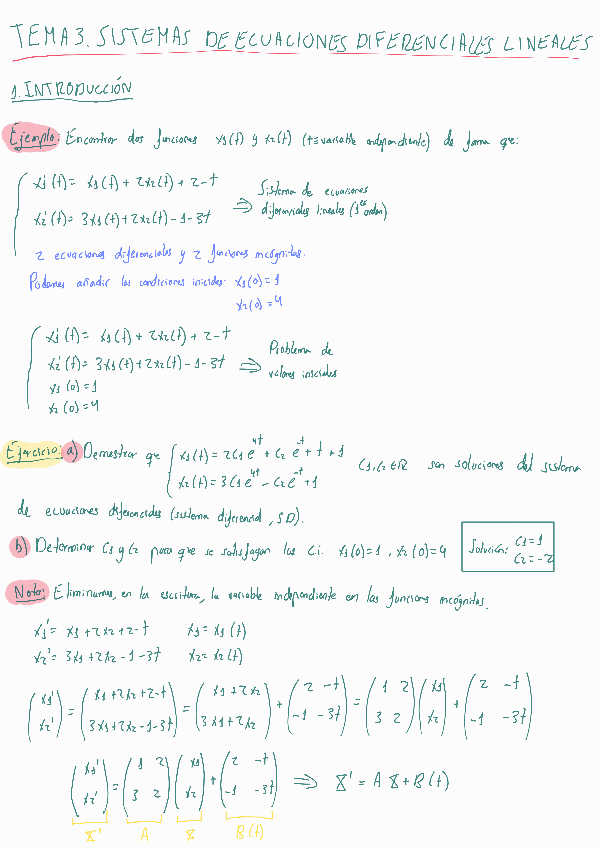 TEMA 3. SISTEMAS DE ECUACIONES DIFERENCIALES LINEALES
1. INTRODUCCIÓN
Ejemplo: Encontrar dos funciones x1(t) y x2(t) (t≡variable independiente) de forma que:
x1'(t) = x1(t) + 2x2(t) + 2-t
x2'(t) = 3x1(t) + 2x2(t) - 1 - 3t
⇒ Sistema de ecuaciones
diferenciales lineales (1er orden)
2 ecuaciones diferenciales y 2 funciones incógnitas.
Podemos añadir las condiciones iniciales: x1(0) = 1
x2(0) = 4
x1'(t) = x1(t) + 2x2(t) + 2-t
x2'(t) = 3x1(t) + 2x2(t) - 1 - 3t
x1(0) = 1
x2(0) = 4
⇒ Problema de
valores iniciales
Ejercicio: a) Demostrar que { x1(t) = 2C1 e^4t + C2 e^-t + t + 1
x2(t) = 3C1 e^4t - C2 e^-t + 1
C1, C2 ∈ R son soluciones del sistema
de ecuaciones diferenciales (sistema diferencial, SD).
b) Determinar C1 y C2 para que se satisfagan las C.i. x1(0) = 1, x2(0) = 4
Solución: C1 = 1
C2 = -2
Nota: Eliminamos, en la escritura, la variable independiente en las funciones incógnitas.
x1' = x1 + 2x2 + 2-t x1 = x1(t)
x2' = 3x1 + 2x2 - 1 - 3t x2 = x2(t)
(x1' x2') = (x1 + 2x2 + 2-t 3x1 + 2x2 - 1 - 3t) = (x1 + 2x2 3x1 + 2x2) + (2 -t -1 -3t) = (1 2 3 2) (x1 x2) + (2 -t -1 -3t)
(x1' x2') = (1 2 3 2) (x1 x2) + (2 -t -1 -3t) ⇒ X' = A X + B(t)
X' A X B(t)